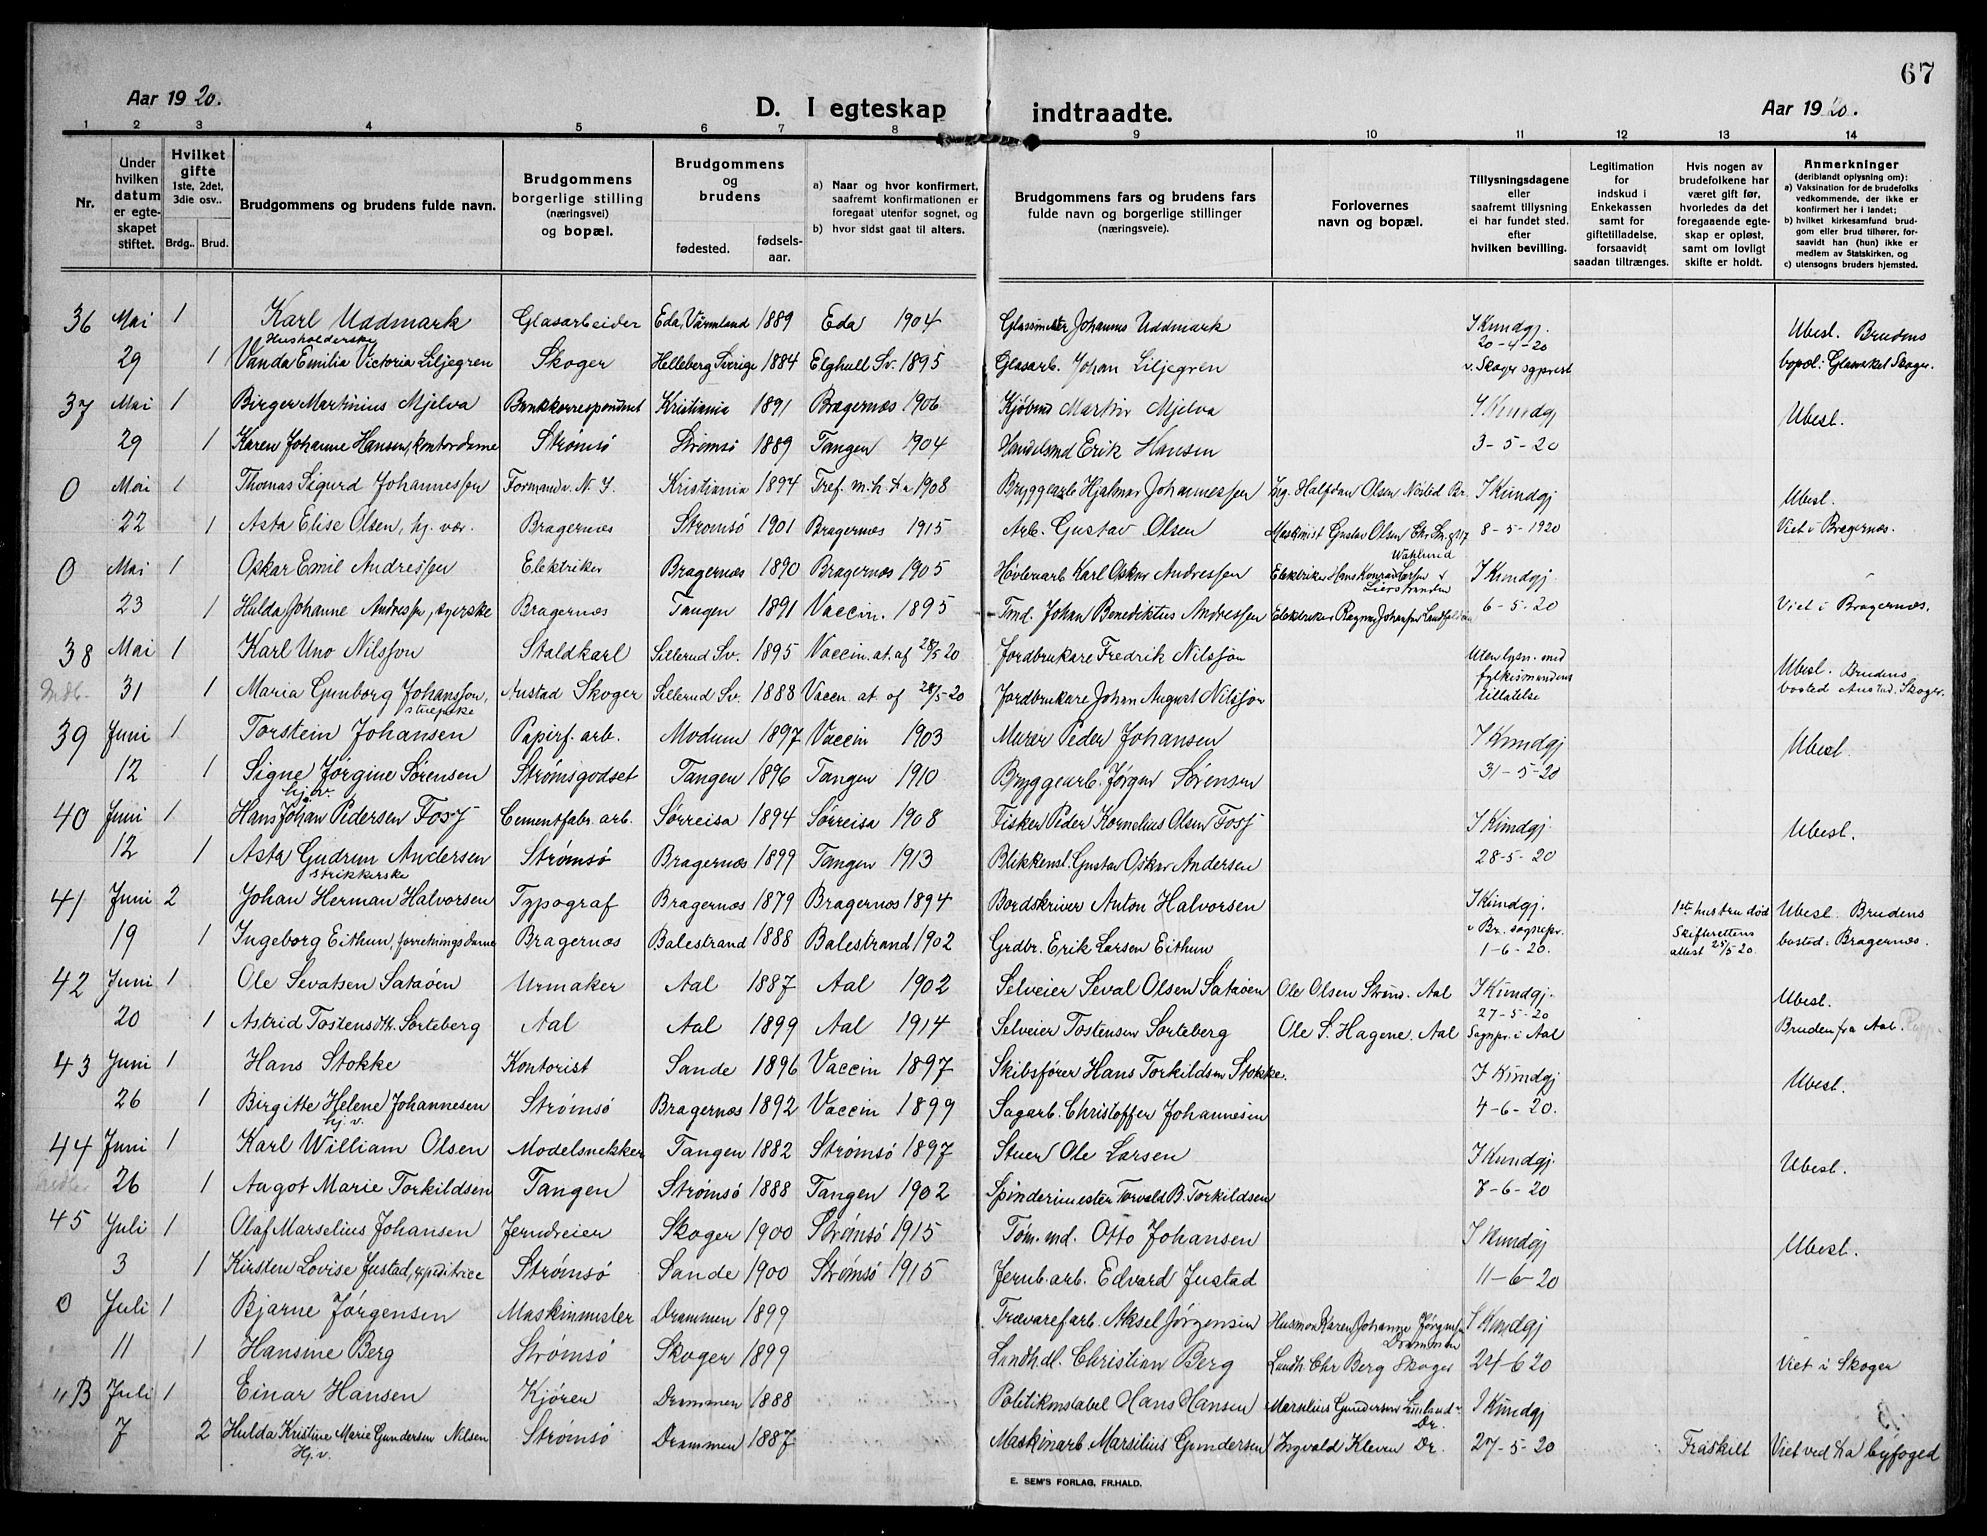 67
Aar 1920.
D. I egteskap indtraadte.
Aar 1920.
1 2 3 4 5 6 7 8 9 10 11 12 13 14
Nr.
Under hvilken datum er egteskapet stiftet.
Hvilket gifte 1ste, 2det, 3die osv..
Brdg.. Brud.
Brudgommens og brudens fulde navn.
Brudgommens borgerlige stilling (næringsvei) og bopæl.
Brudgommens og brudens
fødested. fødsels-aar.
a) Naar og hvor konfirmert, saafremt konfirmationen er foregaat utenfor sognet, og
b) hvor sidst gaat til alters.
Brudgommens fars og brudens fars fulde navn og borgerlige stillinger (næringsveie).
Forlovernes navn og bopæl.
Tillysningsdagene eller saafremt tillysning ei har fundet sted. efter hvilken bevilling.
Legitimation for indskud i Enkekassen samt for giftetilladelse, forsaavidt saadan tiltrænges.
Hvis nogen av brudefolkene har været gift før, hvorledes da det foregaaende egteskap er opløst, samt om lovligt skifte er holdt.
Anmerkninger (deriblandt oplysning om): a) Vaksination for de brudefolks vedkommende, der ikke er konfirmert her i landet; b) hvilket kirkesamfund brudgom eller brud tilhører, forsaavidt han (hun) ikke er medlem av Statskirken, og c) utensogns bruders hjemsted.
36 Mai 1 Karl Uddmark Glasarbeider Eda, Värmland 1889 Eda 1904 Glasmester Johannes Uddmark I Kundgj. 20-4-20 Ubesl. Brudens
Husholderske
29 1 Vanda Emilia Victoria Liljegren Skoger Helleberg Sverige 1884 Elghult Sv. 1895 Glasarb. Johan Liljegren v. Skoger sgprest bopæl: Glasverket Skoger.
37 Mai 1 Birger Martinius Mjelva Bankkorrespondent Kristiania 1891 Bragernæs 1906 Kjøbmd Martin Mjelva I Kundgj Ubesl.
29 1 Karen Johanne Hansen, kontordame Strømsø Strømsø 1889 Tangen 1904 Handelsmd Erik Hansen 3-5-20
0 Mai 1 Thomas Sigurd Johannessen Formand v. N. I. Kristiania 1894 Tref. m.h. Kra 1908 Bryggearb Hjalmar Johannessen Ing. Halfdan Olsen Nøsted Br. I Kundgj Ubesl.
22 1 Asta Elise Olsen, hj. vær. Bragernæs Strømsø 1901 Bragernæs 1915 Arb. Gustav Olsen Maskinist Gustav Olsen 8-5-1920 Viet i Bragernæs.
0 Mai 1 Oskar Emil Andressen Elektriker Bragernæs 1890 Bragernæs 1905 Høvlearb Karl Oskar Andressen Elektriker Hans Konrad Larsen Wahlund Lierstranden I Kundgj.
23 1 Hulda Johanne Andressen, syerske Bragernæs Tangen 1891 Vaccin. 1895 Tmd. Johan Benediktus Andressen Elektriker Ragnar Johansen 6-5-20 Viet i Bragernæs.
38 Mai 1 Karl Uno Nilsson Staldkarl Sillerud Sv. 1895 Vaccin. at. af 28/5 20 Jordbrukare Fredrik Nilsson Uten lysn. med Ubesl. Brudens
31 1 Maria Gunborg Johansson, Austad Skoger Sillerud Sv. 1888 Vaccn. at af 28/5-20 Jordbrukare Johan August Nilsson fylkesmandens tillatelse bosted Austad, Skoger.
stuepike
39 Juni 1 Torstein Johansen Papirf. arb. Modum 1897 Vaccin 1903 Murer Peder Johansen I Kundgj Ubesl.
12 1 Signe Jørgine Sørensen Strømsgodset Tangen 1896 Tangen 1910 Bryggearb. Jørgen Sørensen 31-5-20
hj.v.
40 Juni 1 Hans Johan Pedersen Fosj Cementfabr. arb. Sørreisa 1894 Sørreisa 1908 Fisker Peder Kornelius Olsen Fosj I Kundgj. Ubesl.
12 1 Asta Gudrun Andersen Strømsø Bragernæs 1899 Tangen 1913 Blikkensl. Gustav Oskar Andersen 28-5-20
strikkerske
41 Juni 2 Johan Herman Halvorsen Typograf Bragernæs 1879 Bragernæs 1894 Bordskriver Anton Halvorsen I Kundgj. 1ste hustru død Ubesl. Brudens
19 1 Ingeborg Eithun, forretningsdame Bragernæs Balestrand 1888 Balestrand 1902 Grdbr. Erik Larsen Eithun v Br. sognepr. 1-6-20. Skifterettens attest 25/5 20 bosted: Bragernæs.
42 Juni 1 Ole Sevatsen Sataøen Urmaker Aal 1887 Aal 1902 Selveier Sevat Olsen Sataøen Ole Olsen Strand. Aal I Kundgj. 27-5-20 Ubesl.
20 1 Astrid Tostensdtr. Sorteberg Aal Aal 1899 Aal 1914 Selveier Tostensen Sorteberg Ole S. Hagene. Aal Sognpr. i Aal Bruden fra Aal.
43 Juni 1 Hans Stokke Kontorist Sande 1896 Vaccin 1897 Skibsfører Hans Torkildsen Stokke. I Kundgj Ubesl.
26 1 Birgitte Helene Johannesen Strømsø Bragernæs 1892 Vaccin 1899 Sagarb. Christoffer Johannesen 4-6-20.
hj.v.
44 Juni 1 Karl William Olsen Modelsnekker Tangen 1882 Strømsø 1897 Stuer Ole Larsen I Kundgj. Ubesl.
26 1 Aagot Marie Torkildsen Tangen Strømsø 1888 Tangen 1902 Spinderimester Torvald B. Torkildsen 7-6-20
45 Juli 1 Olaf Marselius Johansen Jerndreier Skoger 1900 Strømsø 1915 Tøm. md. Otto Johansen I Kundgj Ubesl.
3 1 Kirsten Lovise Justad, expeditrice Strømsø Sande 1900 Strømsø 1915 Jernb. arb. Edvard Justad 11-6-20
0 Juli 1 Bjarne Jørgensen Maskinmester Drammen 1899 Trævarefarb. Aksel Jørgensen Husmor Karen Johanne Jørgensen Drammen I Kundgj
11 1 Hansine Berg Strømsø Skoger 1899 Landh.dl. Christian Berg Landh. Chr Berg Skoger 24-6 20 Viet i Skoger
"B Juli 1 Einar Hansen Kjører Drammen 1888 Politikonstabel Hans Hansen Marselius Gundersen Dr. I Kundgj
7 2 Hulda Kristine Marie Gundersen Nilsen Strømsø Drammen 1887 Maskinarb Marsilius Gundersen Ingvald Kleven Dr. 27-5-20 Fraskilt Viet ved Ka byfoged
Hj.v.
E. SEM'S FORLAG, FR.HALD.